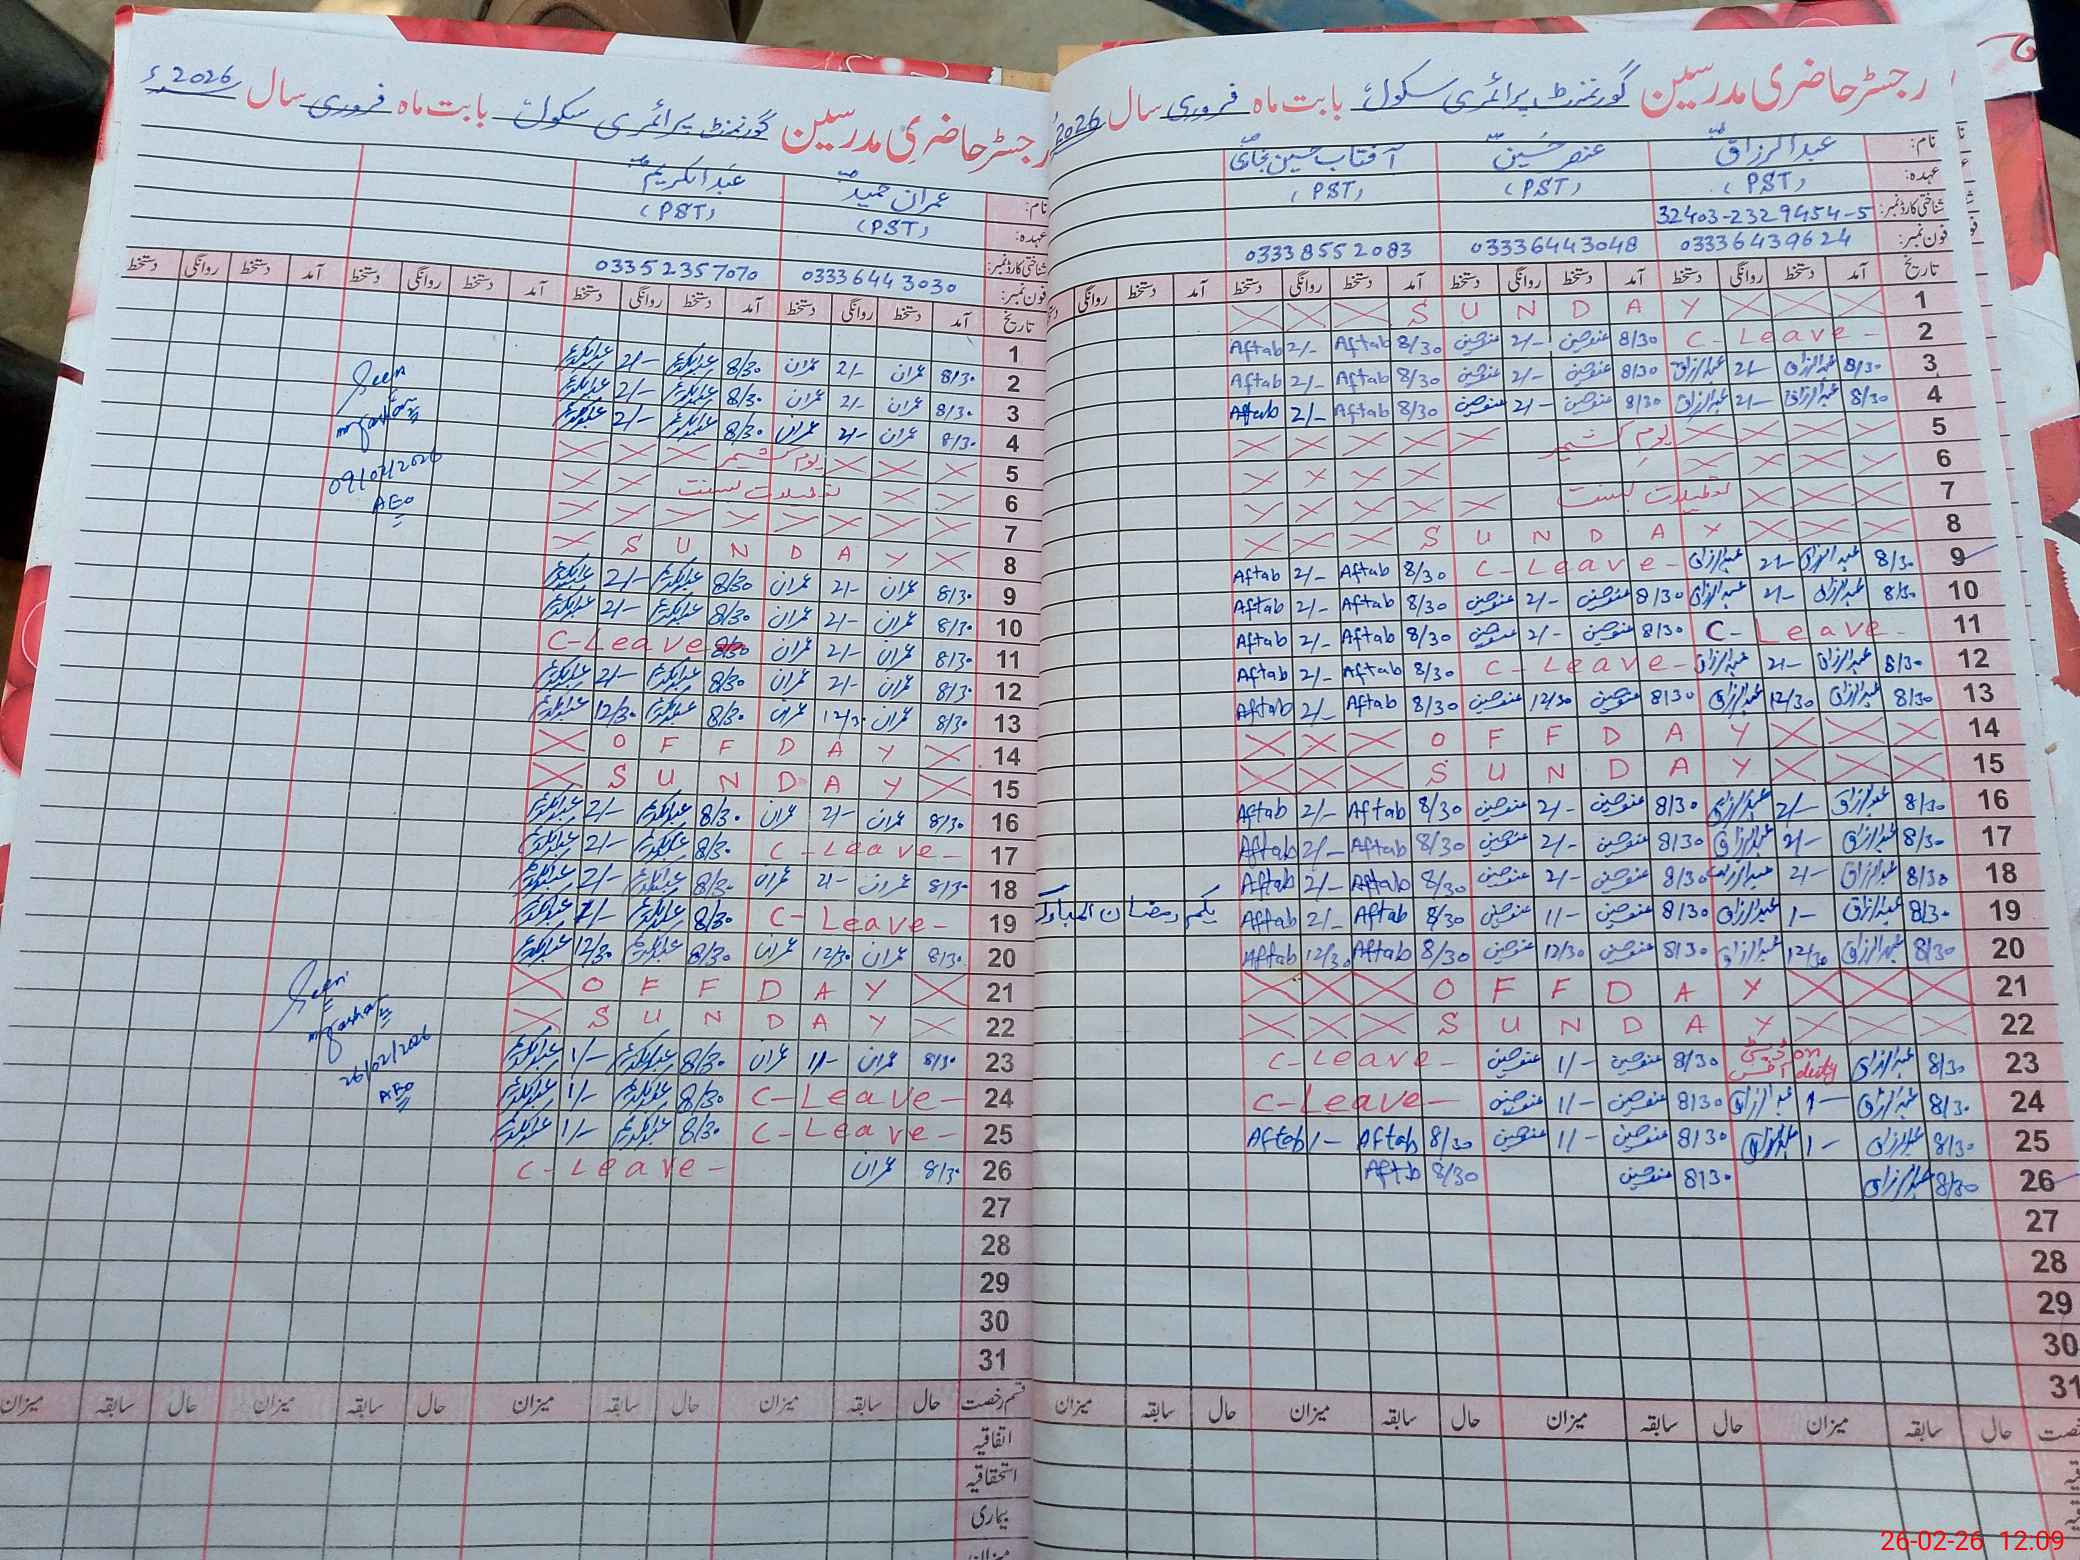 رجسٹر حاضری مدرسین گورنمنٹ پرائمری سکول بابت ماہ فروری سال 2026
نام: عبدالرزاق عنصر حسین آفتاب حسین بخاری
عہدہ: (PST) (PST) (PST)
شناختی کارڈ نمبر: 32403-2329454-5
فون نمبر: 03336439624 03336443048 03338552083
تاریخ آمد دستخط روانگی دستخط آمد دستخط روانگی دستخط آمد دستخط روانگی دستخط آمد دستخط روانگی
1 SUNDAY
2 C-Leave- 8/30 عنصر حسین 2/- عنصر حسین 8/30 Aftab 2/- Aftab
3 8/30 عبدالرزاق 2/- عبدالرزاق 8/30 عنصر حسین 2/- عنصر حسین 8/30 Aftab 2/- Aftab
4 8/30 عبدالرزاق 2/- عبدالرزاق 8/30 عنصر حسین 2/- عنصر حسین 8/30 Aftab 2/- Aftab
5 یوم کشمیر
6
7 تعطیلات بسنت
8 SUNDAY
9 8/30 عبدالرزاق 2/- عبدالرزاق C-Leave- 8/30 Aftab 2/- Aftab
10 8/30 عبدالرزاق 2/- عبدالرزاق 8/30 عنصر حسین 2/- عنصر حسین 8/30 Aftab 2/- Aftab
11 C-Leave- 8/30 عنصر حسین 2/- عنصر حسین 8/30 Aftab 2/- Aftab
12 8/30 عبدالرزاق 2/- عبدالرزاق C-Leave- 8/30 Aftab 2/- Aftab
13 8/30 عبدالرزاق 12/30 عبدالرزاق 8/30 عنصر حسین 12/30 عنصر حسین 8/30 Aftab 2/- Aftab
14 OFF DAY
15 SUNDAY
16 8/30 عبدالرزاق 2/- عبدالرزاق 8/30 عنصر حسین 2/- عنصر حسین 8/30 Aftab 2/- Aftab
17 8/30 عبدالرزاق 2/- عبدالرزاق 8/30 عنصر حسین 2/- عنصر حسین 8/30 Aftab 2/- Aftab
18 8/30 عبدالرزاق 2/- عبدالرزاق 8/30 عنصر حسین 2/- عنصر حسین 8/30 Aftab 2/- Aftab
19 8/30 عبدالرزاق 1- عبدالرزاق 8/30 عنصر حسین 1/- عنصر حسین 8/30 Aftab 2/- Aftab یکم رمضان المبارک
20 8/30 عبدالرزاق 12/30 عبدالرزاق 8/30 عنصر حسین 12/30 عنصر حسین 8/30 Aftab 12/30 Aftab
21 OFF DAY
22 SUNDAY
23 8/30 عبدالرزاق on duty ڈپٹی آفس 8/30 عنصر حسین 1/- عنصر حسین C-Leave-
24 8/30 عبدالرزاق 1- عبدالرزاق 8/30 عنصر حسین 1/- عنصر حسین C-Leave-
25 8/30 عبدالرزاق 1- عبدالرزاق 8/30 عنصر حسین 1/- عنصر حسین 8/30 Aftab 1- Aftab
26 8/30 عبدالرزاق 8/30 عنصر حسین 8/30 Aftb
27
28
29
30
31
حال سابقہ میزان حال سابقہ میزان حال سابقہ میزان حال سابقہ میزان
رجسٹر حاضری مدرسین گورنمنٹ پرائمری سکول بابت ماہ فروری سال 2026ء
نام: عمران حمید عبدالکریم
عہدہ: (PST) (PST)
شناختی کارڈ نمبر:
فون نمبر: 03336443030 03352357070
تاریخ آمد دستخط روانگی دستخط آمد دستخط روانگی دستخط آمد دستخط روانگی دستخط آمد دستخط روانگی دستخط
1
2 8/30 عمران 2/- عمران 8/30 عبدالکریم 2/- عبدالکریم Seen
3 8/30 عمران 2/- عمران 8/30 عبدالکریم 2/- عبدالکریم
4 8/30 عمران 2/- عمران 8/30 عبدالکریم 2/- عبدالکریم
5 یوم کشمیر 09/02/2026
6 تعطیلات بسنت AEO
7
8 SUNDAY
9 8/30 عمران 2/- عمران 8/30 عبدالکریم 2/- عبدالکریم
10 8/30 عمران 2/- عمران 8/30 عبدالکریم 2/- عبدالکریم
11 8/30 عمران 2/- عمران 8/30 C-Leave
12 8/30 عمران 2/- عمران 8/30 عبدالکریم 2/- عبدالکریم
13 8/30 عمران 12/30 عمران 8/30 عبدالکریم 12/30 عبدالکریم
14 OFF DAY
15 SUNDAY
16 8/30 عمران 2/- عمران 8/30 عبدالکریم 2/- عبدالکریم
17 C-Leave- 8/30 عبدالکریم 2/- عبدالکریم
18 8/30 عمران 2/- عمران 8/30 عبدالکریم 2/- عبدالکریم
19 C-Leave- 8/30 عبدالکریم 1/- عبدالکریم
20 8/30 عمران 12/30 عمران 8/30 عبدالکریم 12/30 عبدالکریم
21 OFF DAY Seen
22 SUNDAY
23 8/30 عمران 1/- عمران 8/30 عبدالکریم 1/- عبدالکریم 26/02/2026
24 C-Leave- 8/30 عبدالکریم 1/- عبدالکریم AEO
25 C-Leave- 8/30 عبدالکریم 1/- عبدالکریم
26 8/30 عمران C-Leave-
27
28
29
30
31
قسم رخصت حال سابقہ میزان حال سابقہ میزان حال سابقہ میزان حال سابقہ میزان
اتفاقیہ
استحقاقیہ
بیماری
میزان
26-02-26 12:09